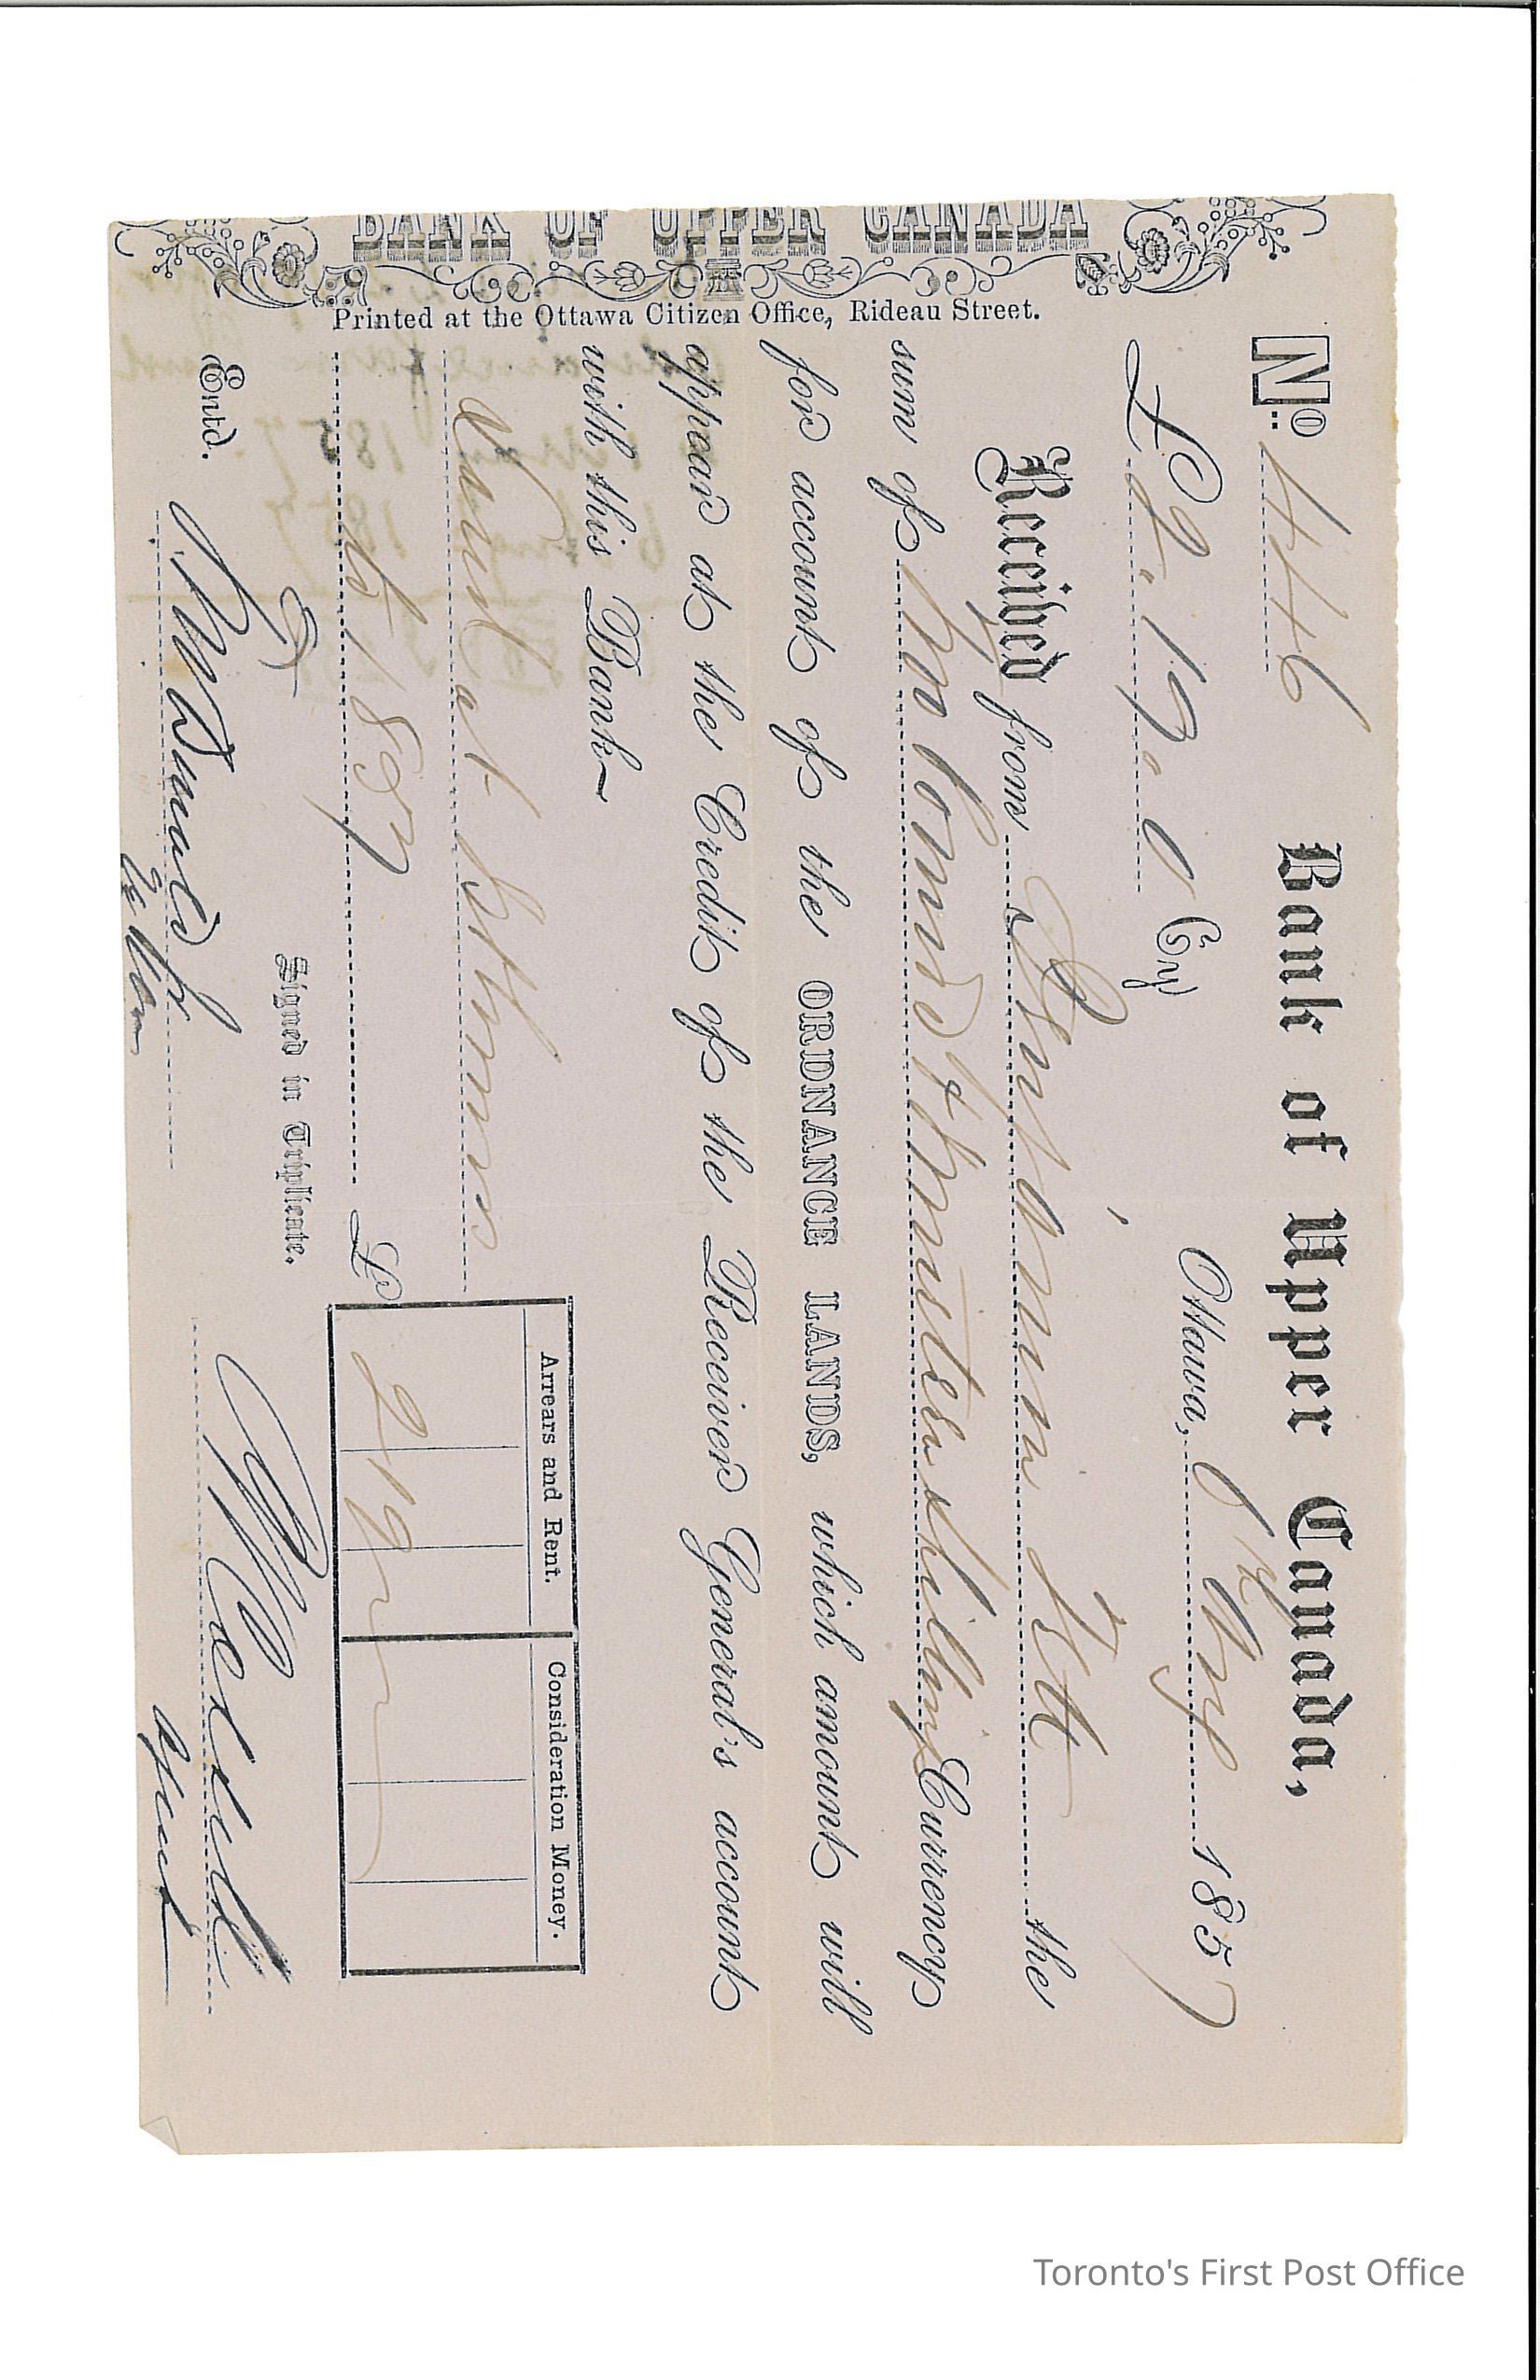 BANK OF UPPER CANADA
Printed at the Ottawa Citizen Office, Rideau Street.
No. 446 Bank of Upper Canada,
£2. 19. 0 Cy Ottawa, 6 1857
Received from Benjamin Tett the
sum of Two Pounds Nineteen shillings Currency
for account of the ORDNANCE LANDS, which amount will
appear at the Credit of the Receiver General's account
with this Bank
at
1857
Arrears and Rent. Consideration Money.
£ 2 19
Signed in Triplicate.
Entd.
Agent
Toronto's First Post Office